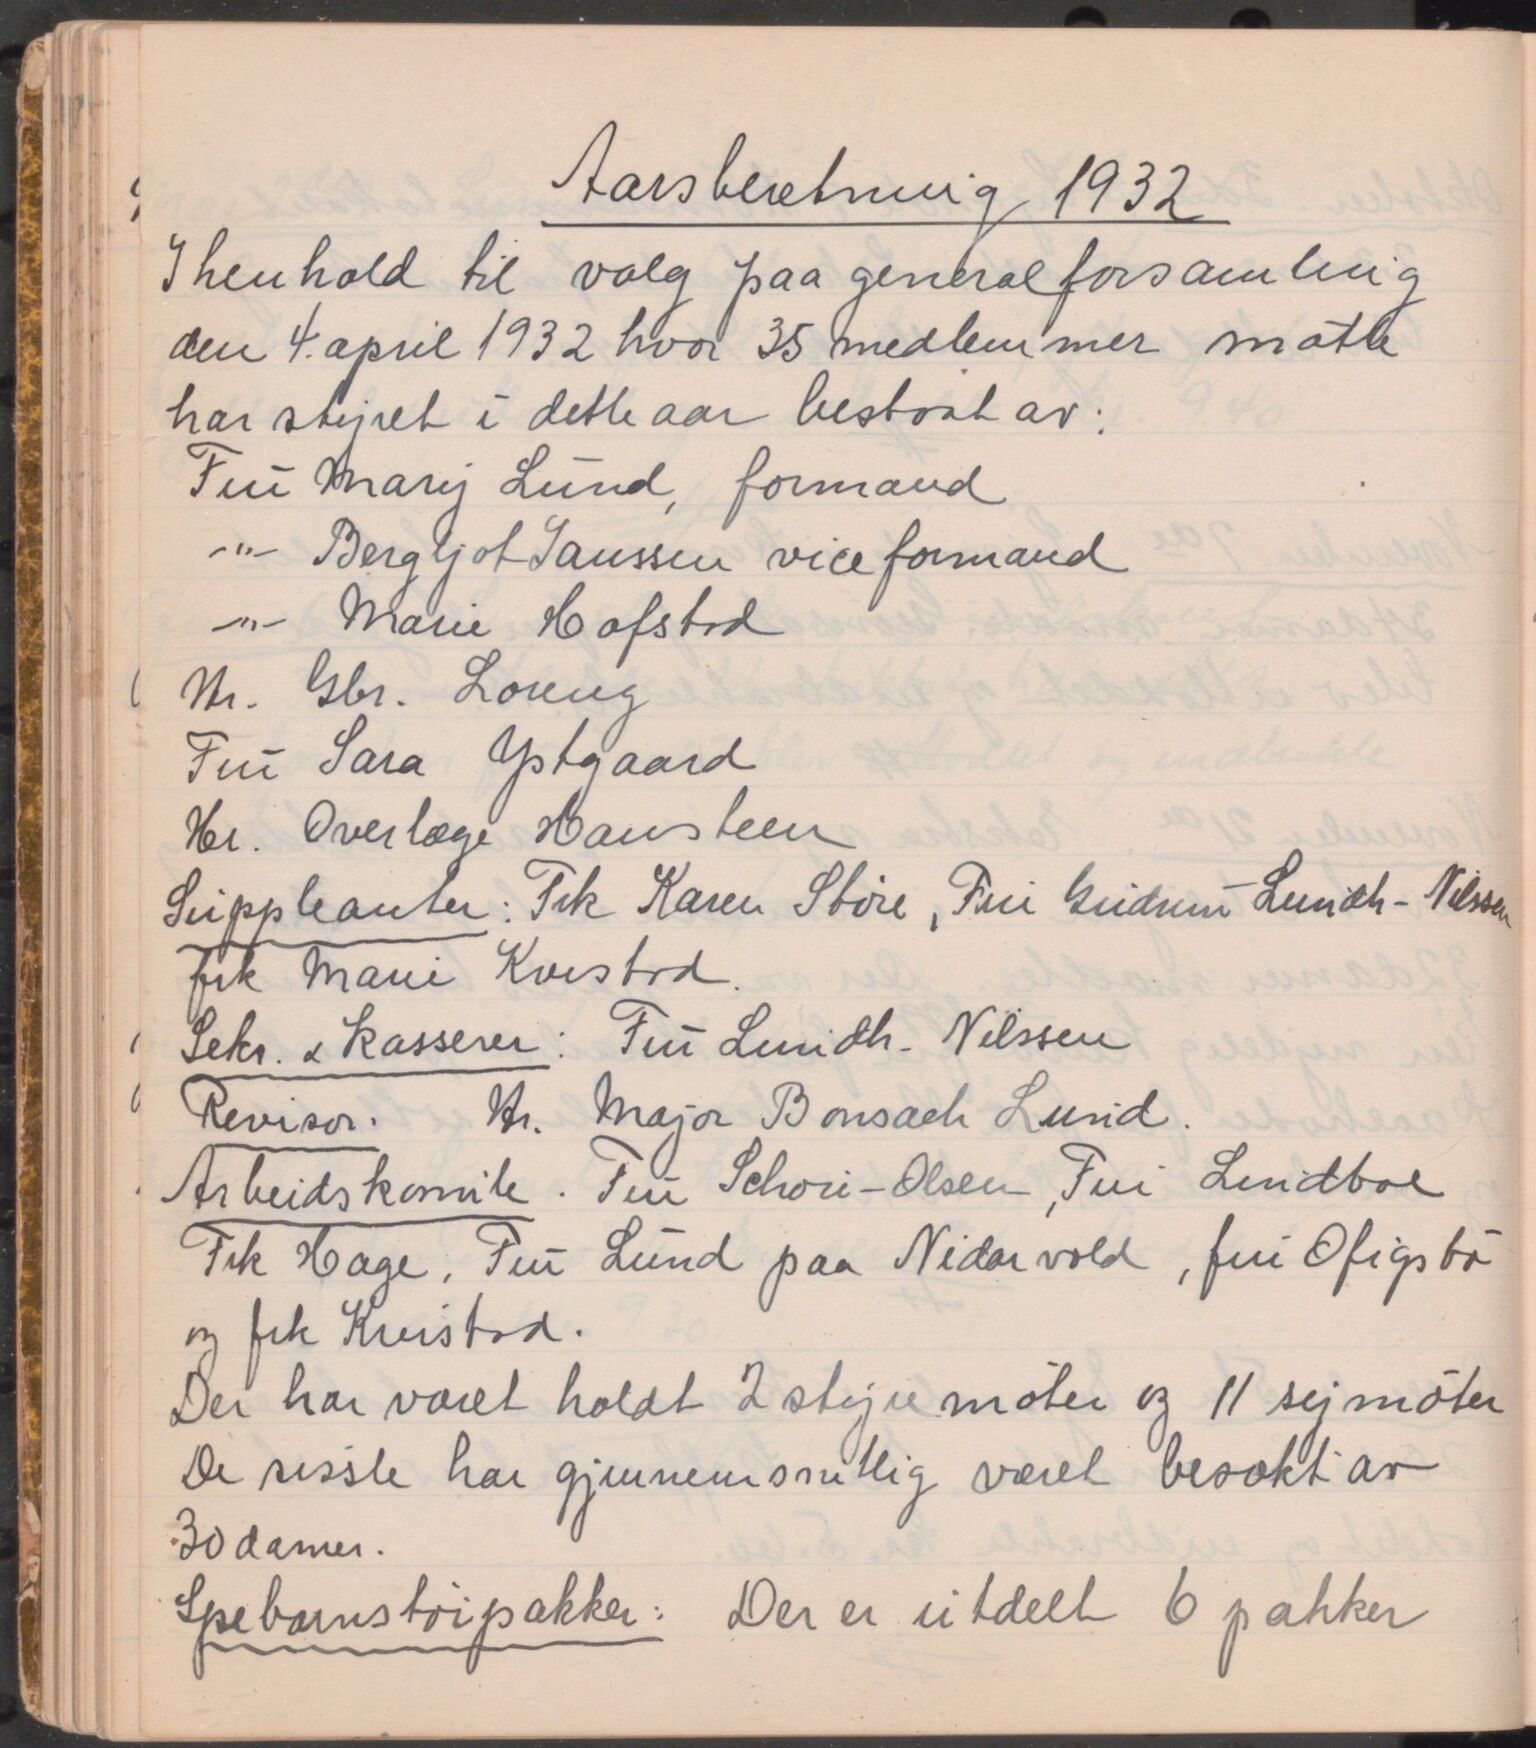 Aarsberetning 1932
I henhold til valg paa generalforsamling
den 4. april 1932 hvor 35 medlemmer møtte
har styret i dette aar bestaat av:
Fru Mary Lund, formand
-"- Bergljot Janssen viceformand
-"- Marie Hofstad
Hr. Gbr. Loreng
Fru Sara Ystgaard
Hr. Overlæge Hansteen
Suppleanter: Frk Karen Støre, Fru Gudrun Lundh-Nilssen
frk Marie Kvistad.
Sekr. & Kasserer: Fru Lundh-Nilssen
Revisor. Hr. Major Bonsach Lund.
Arbeidskomite. Fru Schou-Olsen, Fru Lindboe
Frk Hage, Fru Lund paa Nidarvold, fru Ofigsbø
og frk Kvistad.
Der har været holdt 2 styremøter og 11 symøter
De sisste har gjennemsnitlig været besøkt av
30 damer.
Spebarnstøipakker: Der er utdelt 6 pakker